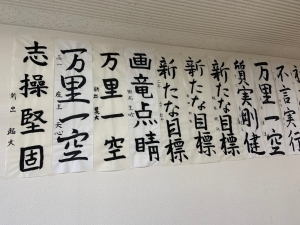 不言実行
万里一空
質実剛健
新たな目標
新たな目標
新たな目標
画竜点睛
万里一空
万里一空
志操堅固